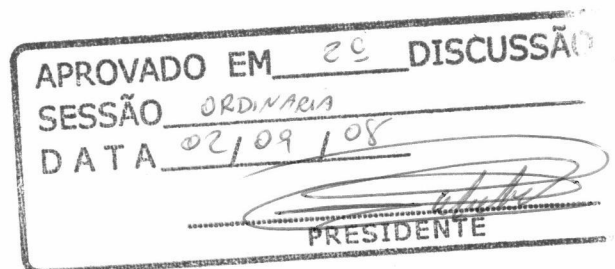 APROVADO EM 2ª DISCUSSÃO
SESSÃO ORDINARIA
DATA 02/09/08
PRESIDENTE